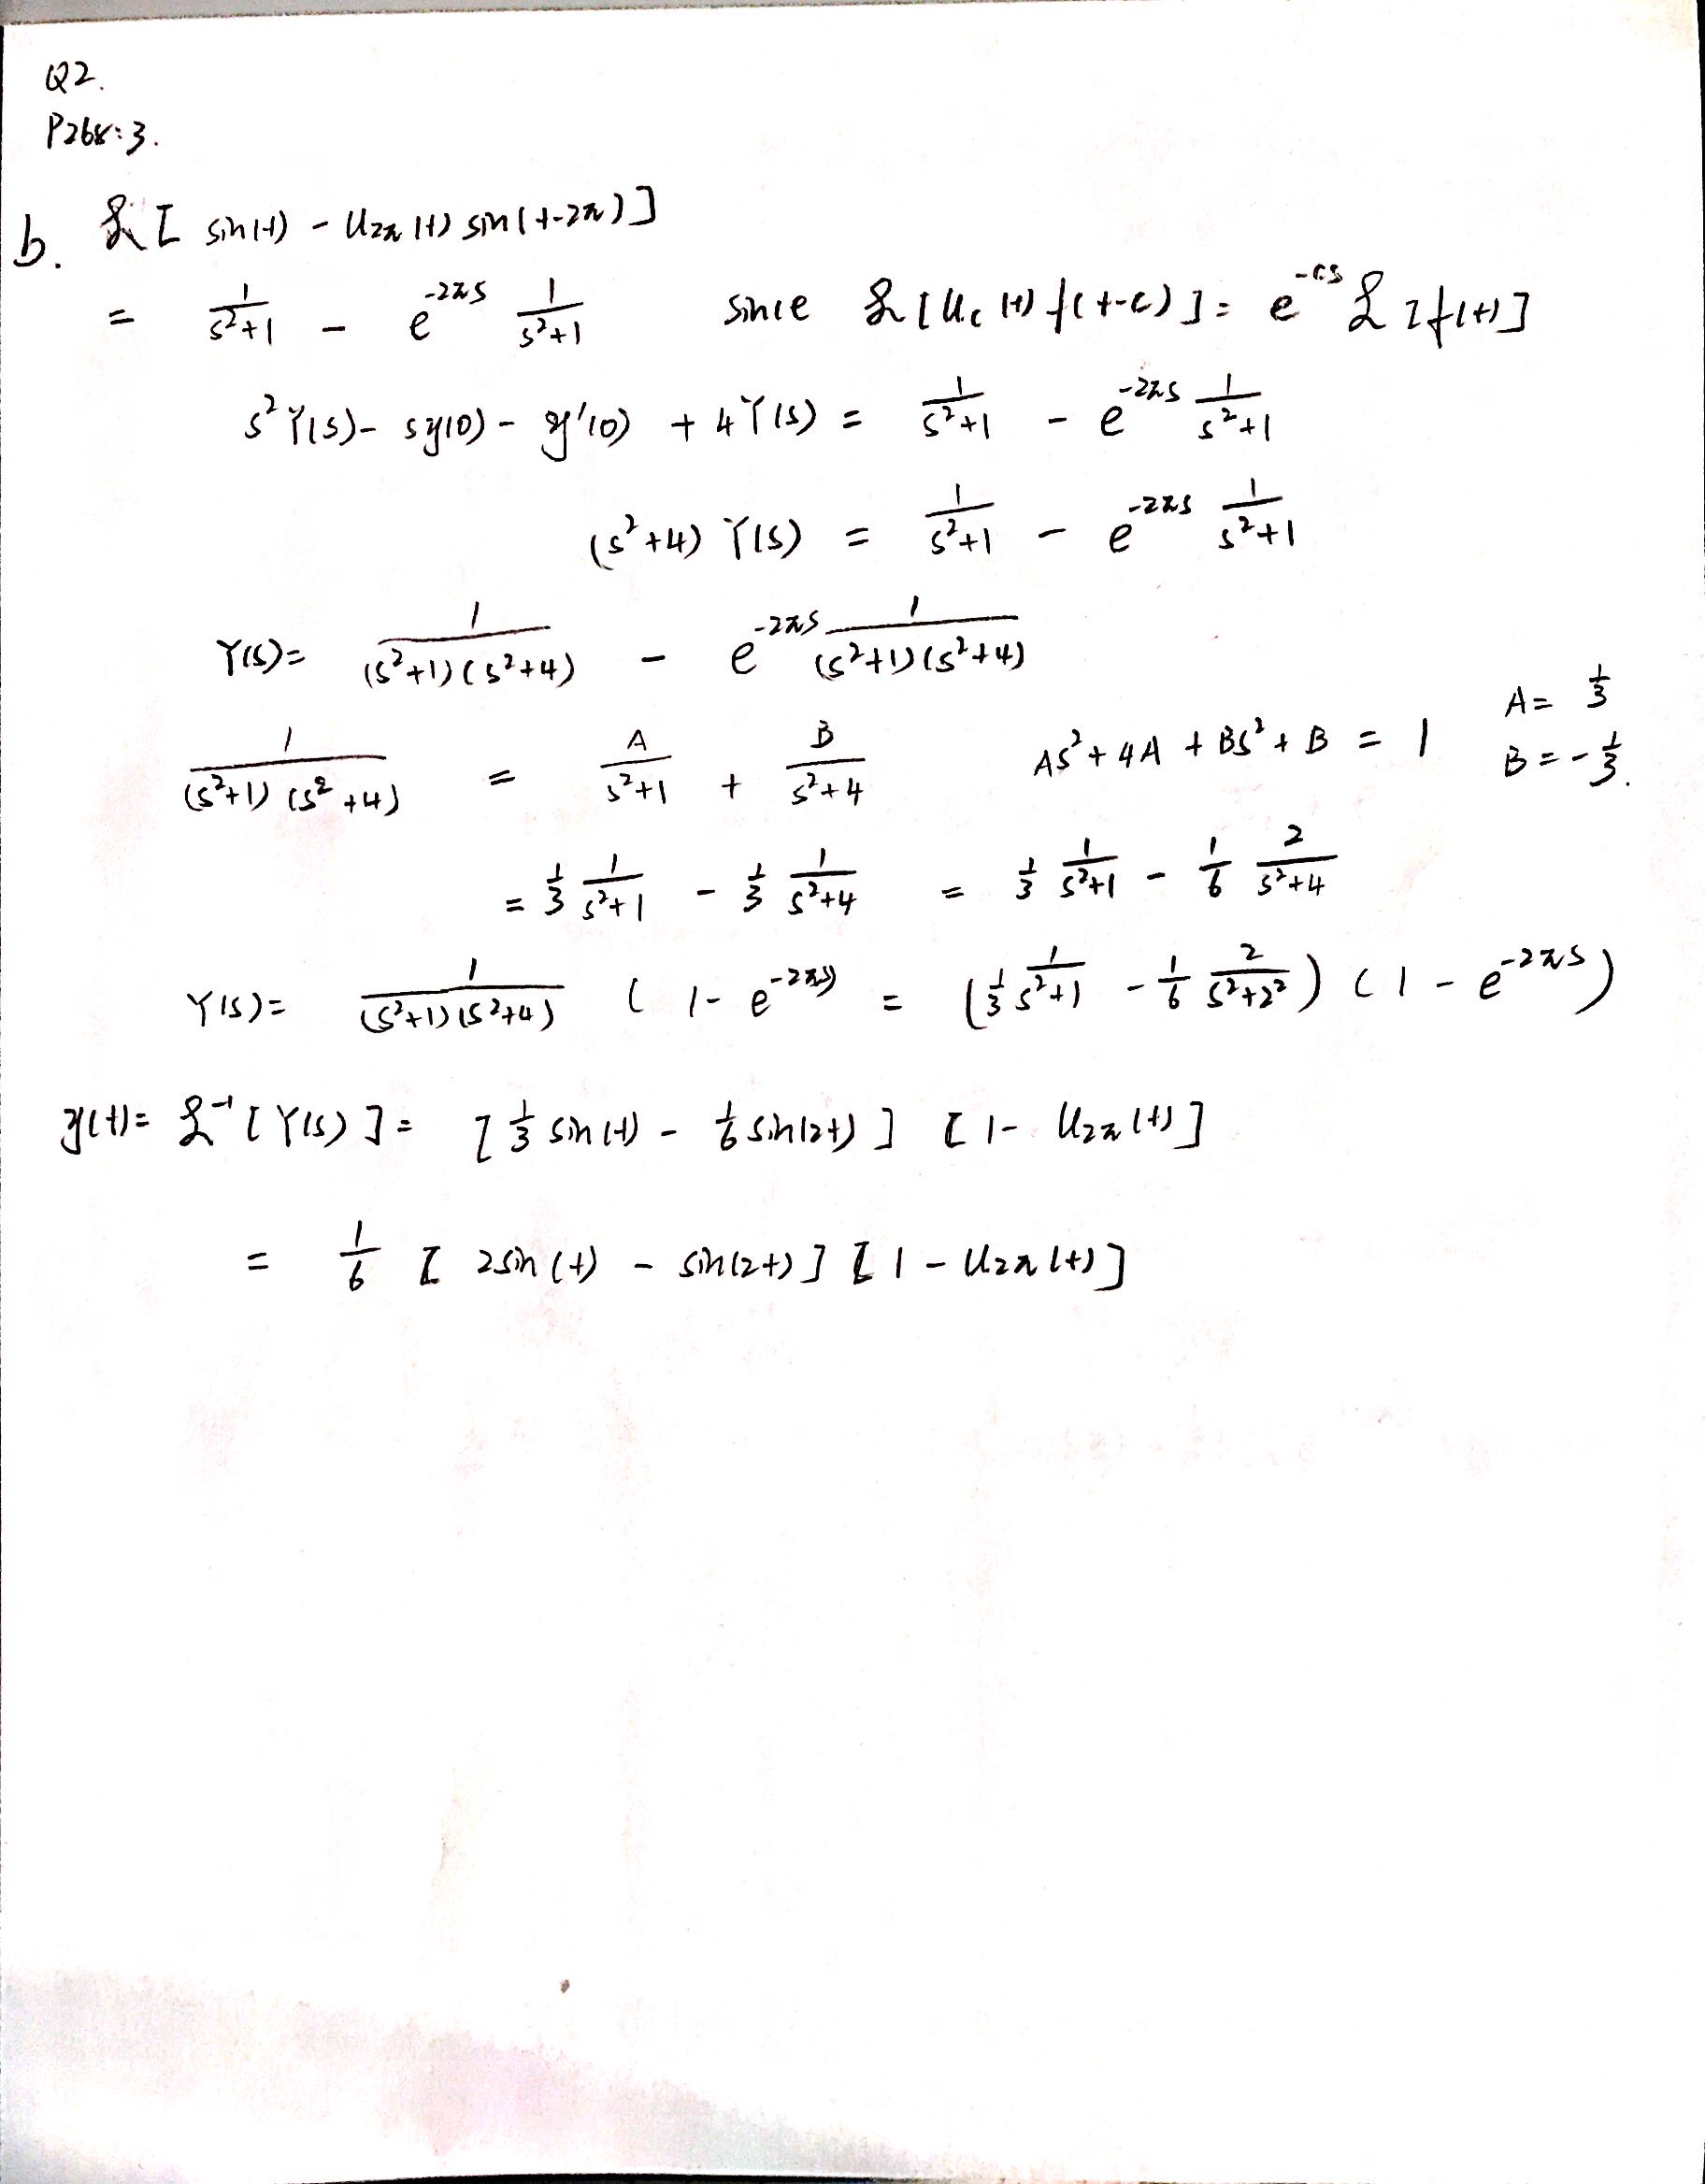 Q2.
P268:3.
b. ℒ[ sin(t) - u₂π(t) sin(t-2π)]
= 1/(s²+1) - e^(-2πs) 1/(s²+1) since ℒ[u_c(t) f(t-c)] = e^(-cs) ℒ[f(t)]
s²Y(s) - sy(0) - y'(0) + 4Y(s) = 1/(s²+1) - e^(-2πs) 1/(s²+1)
(s²+4) Y(s) = 1/(s²+1) - e^(-2πs) 1/(s²+1)
Y(s) = 1/((s²+1)(s²+4)) - e^(-2πs) 1/((s²+1)(s²+4))
1/((s²+1)(s²+4)) = A/(s²+1) + B/(s²+4) As²+4A+Bs²+B = 1 A = 1/3 B = -1/3.
= 1/3 1/(s²+1) - 1/3 1/(s²+4) = 1/3 1/(s²+1) - 1/6 2/(s²+4)
Y(s) = 1/((s²+1)(s²+4)) (1-e^(-2πs)) = (1/3 1/(s²+1) - 1/6 2/(s²+2²)) (1-e^(-2πs))
y(t) = ℒ⁻¹[Y(s)] = [1/3 sin(t) - 1/6 sin(2t)] [1- u₂π(t)]
= 1/6 [2sin(t) - sin(2t)] [1 - u₂π(t)]